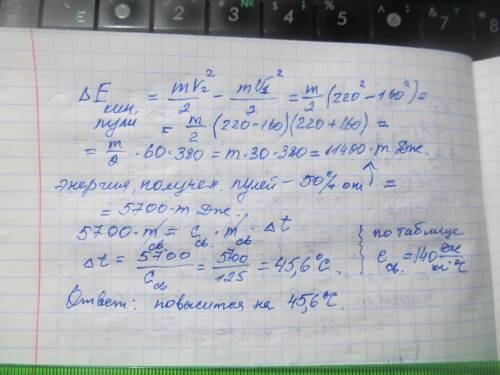 ΔE кин. пули = mV₂²/2 - mV₁²/2 = m/2 (220² - 160²) =
= m/2 (220-160)(220+160) =
= m/2 · 60 · 380 = m · 30 · 380 = 11400 · m Дж.
энергия, получен. пулей - 50% от ↑ =
= 5700 · m Дж.
5700 · m св. = c св. · m св. · Δt
Δt = 5700/c св = 5700/125 = 45,6°C.
по таблице
c св. = 140 Дж/кг°C
Ответ: повысится на 45,6°C.